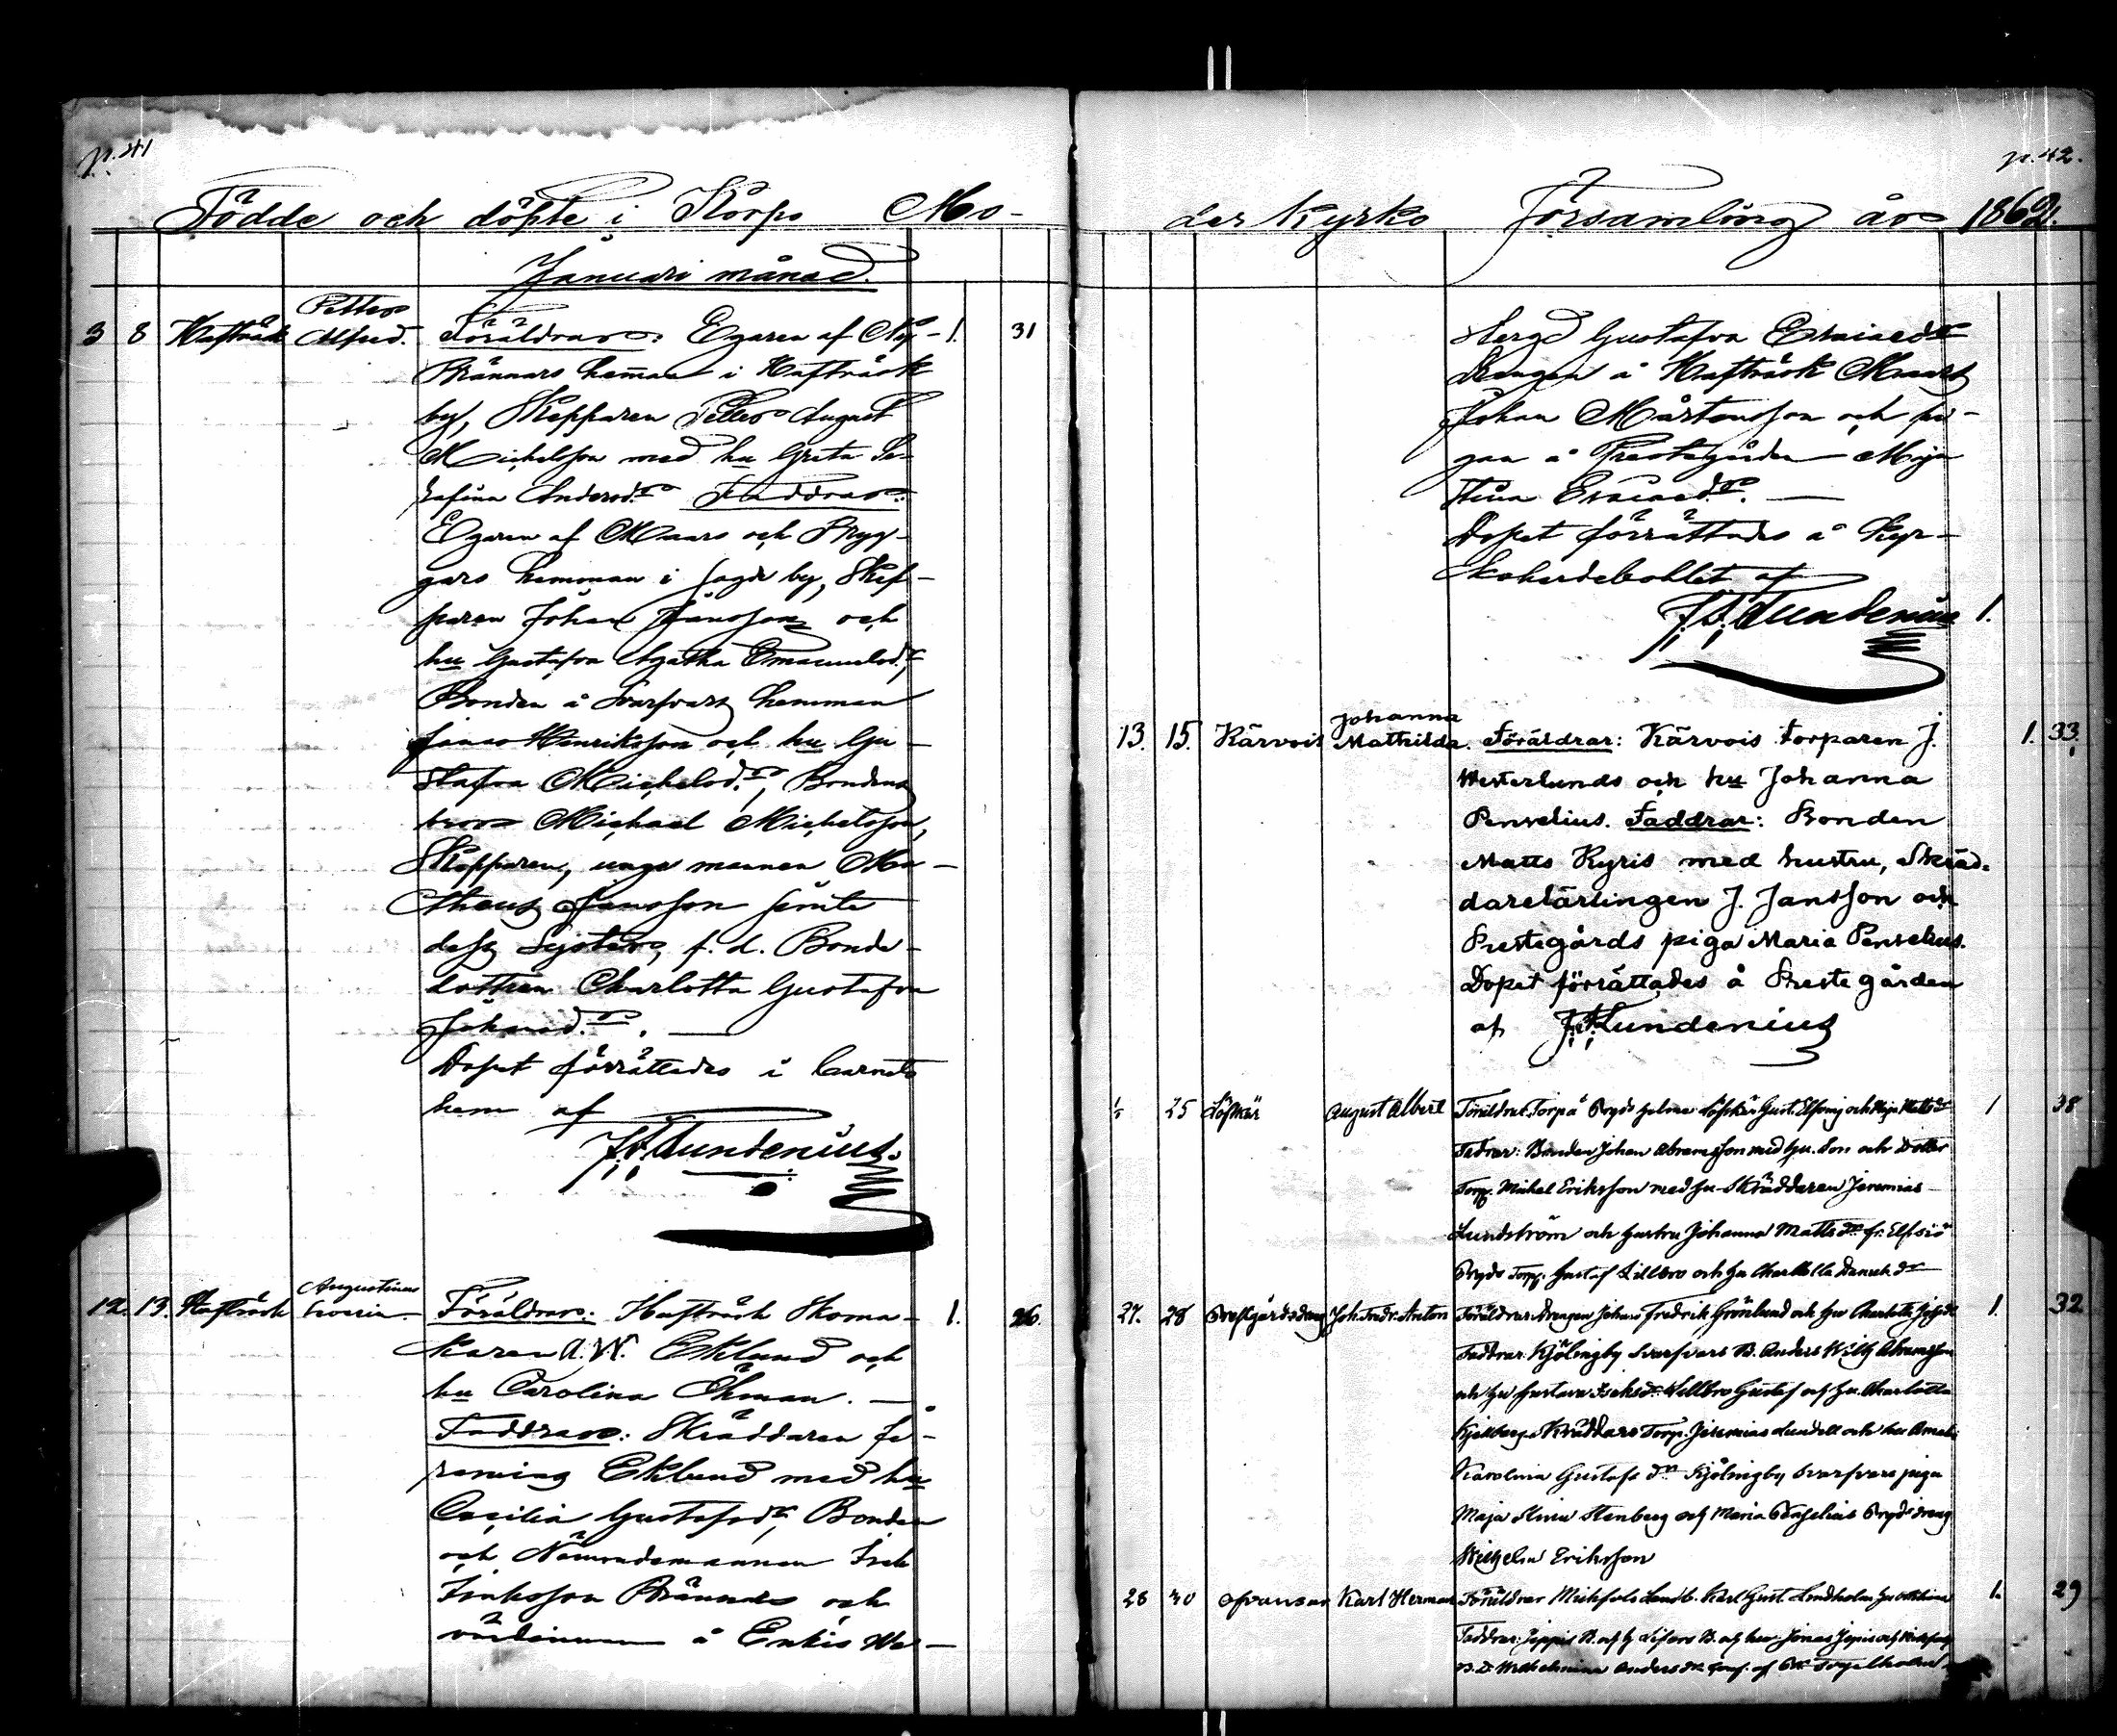 p. 41
Födde och döpte i Korpo Mo-
Januari månad.
Petter
3 8 Kafträsk Alfred. Föräldrar: Egaren af Ny- 1. 31
Brännars hemman i Kafträsk
by, Skepparen Petter August
Michelsson med hu Greta Se-
rafina Andersd.r Faddrar:
Egaren af Maars och Bryg-
gars hemman i sagde by, Skep-
paren Johan Jansson och
hu Gustafva Agatha Emanuelsd.r,
Bonden å Svarfvars hemman
Henriksson och hu Gu-
stafva Michelsd.r, Bondens
bror Michael Michelsson,
Skepparen, unge mannen Ma-
theus Jansson jemte
dess Syster, f. d. Bonde-
dottren Charlotta Gustafva
Johansd.r. —
Dopet förrättades i barnets
hem af
J. F. Lundenius.
Augustinus
12. 13. Kafträsk Föräldrar: Kafträsk Skoma- 1. 26.
karen A. W. Eklund och
hu Carolina Öhman. —
Faddrar: Skräddaren Je-
remias Eklund med hu
Cecilia Gustafsd.r, Bonden
och Nämndemannen Isak
Isaksson Brännars och
värdinnan å Enkis
p. 42.
der Kyrko Församling år 1862.
Gustafva
drengen å Kafträsk
Johan Mårtensson och pi-
gan å Prestegården Maja
Stina
Dopet förrättades å Kyr-
koherdebohlet af
J. F. Lundenius 1.
Johanna
13. 15. Kärvois Mathilda. Föräldrar: Kärvois torparen J. 1. 33.
Westerlunds och hu Johanna
Penselius. Faddrar: Bonden
Matts Kyris med hustru, Skräd-
darelärlingen J. Jansson och
Prestegårds piga Maria Penselius.
Dopet förrättades å Prestegården
af J. F. Lundenius
25 Löfskär August Albert Föräldrar: Torp å Löfskär Gust. och Maja Mattsdr 1 38
Fadrar: Bonden Johan Abramsson med hu. Son och Dotter
Torp. Mickel Eriksson med hu Skräddaren Jeremias
Lundström och hustru Johanna Mattsdr fr. Elfsiö
Torp. Gustaf Lillbro och hu Charlotta
27. 28 Prestgårdsdreng Joh. Fredr. Anton Föräldrar: drengen Johan Fredrik Grönlund och hu Charlotta 1. 32
Faddrar: Kjölingby Svarfvars B. Anders Wilh. Abramsson
och hu Gustava Isaksdr. Lillbro Gustaf och hu Charlotta
Kjellberg. Skräddars Torp. Jeremias Lundell och hu Amalia
Karolina Gustafsdr Kjölingby Svarfvars piga
Maja Stina Stenberg och Maria Penselius dreng
Wilhelm Eriksson
28 30 Karl Herman Föräldrar Karl Gust. Lindholm 1. 29
Faddrar: Jonas
Wilhelmina Andersdr